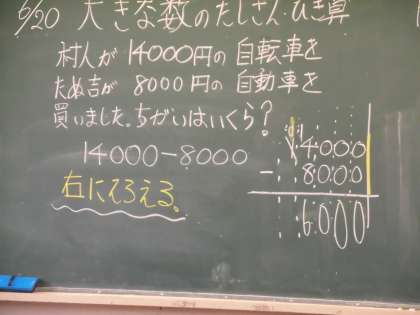 6/20 大きな数のたしざん・ひき算
村人が 14000円の 自転車を
ため吉が 8000円の 自動車を
買いました。ちがいはいくら?
14000-8000
右にそろえる。
14000
- 8000
6000